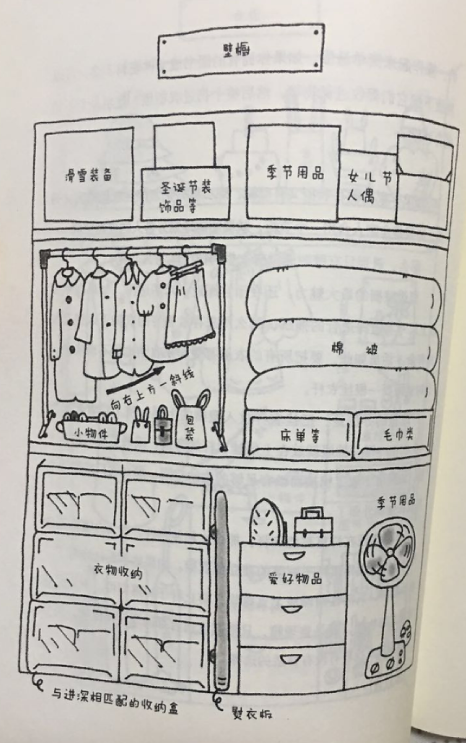 壁橱
滑雪装备
圣诞节装
饰品等
季节用品
女儿节
人偶
向右上方一斜线
棉被
小物件
包
袋
床单等
毛巾类
季节用品
衣物收纳
爱好物品
与进深相匹配的收纳盒
熨衣板